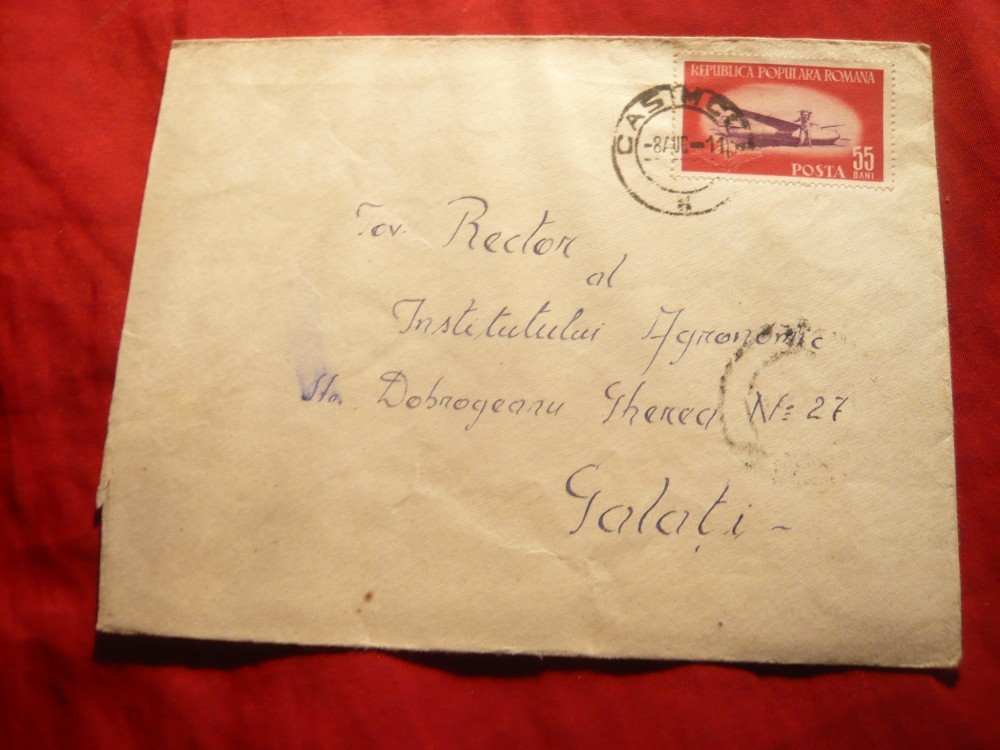 REPUBLICA POPULARA ROMANA
POSTA 55 BANI
CASIMCE
-8AUG-11
Tov. Rector
al
Institutului Agronomic
Str. Dobrogeanu Gherea Nº 27
Galați -